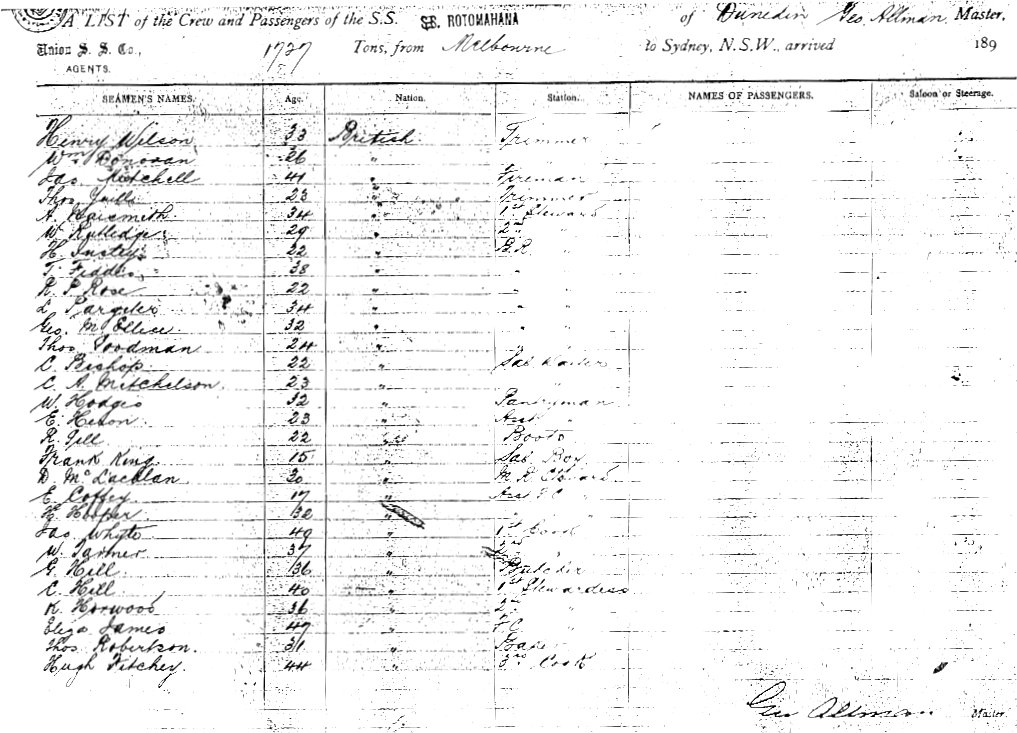 A LIST of the Crew and Passengers of the S.S. S.S. ROTOMAHANA of Dunedin Geo. Allman, Master,
Union S. S. Co., 1727 Tons, from Melbourne to Sydney, N.S.W., arrived 189
AGENTS.
SEAMEN'S NAMES. Age. Nation. Station. NAMES OF PASSENGERS. Saloon or Steerage.
Henry Wilson 33 British Trimmer
Wm. Donovan 26 " "
Jas. Mitchell 41 " Fireman
Thos. 23 " Trimmer
A. Naismith 34 " 1st Steward
W. Rutledge 29 " 2nd "
H. 22 " B.R. "
T. 38 " " "
R. P. Rose 22 " " "
L. Pargiter 34 " " "
Geo. M. Ellese 32 " " "
Thos. Goodman 24 " " "
C. Bishop 22 " Sal. Waiter
C. A. Mitchelson 23 " "
W. Hodges 32 " Pantryman
E. 23 " Asst "
R. Gill 22 " Boots
Frank King 15 " Sal. Boy
D. McLachlan 20 " Steward
E. Coffey 17 " Asst F.C. "
H. Hooper 32 " " "
Jas. Whyte 49 " 1st Cook
W. 37 " 2nd "
G. Hill 36 " Butcher
C. Hill 40 " 1st Stewardess
K. Horwood 36 " 2nd "
Eliza James 47 " F.C. "
Thos. Robertson 31 " Baker
Hugh Fitchey 44 " 3rd Cook
Geo Allman Master.